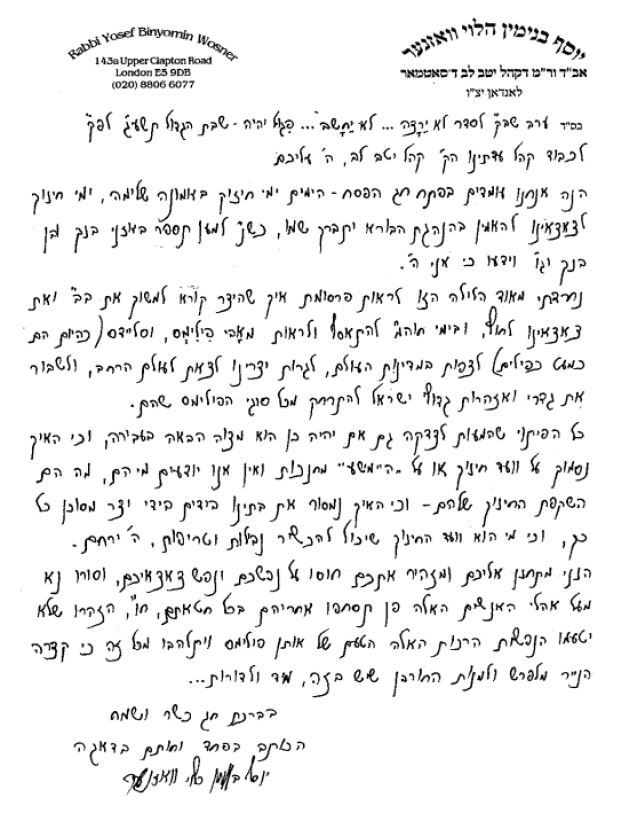 Rabbi Yosef Binyomin Wosner
143a Upper Clapton Road
London E5 9DB
(020) 8806 6077
יוסף בנימין הלוי וואזנער
אב"ד ור"מ דקהל יטב לב ד'סאטמאר
לאנדאן יצ"ו
בס"ד ערב שב"ק לסדר לא יֵרָצֶה ... לא יֵחָשֵׁב ... פִּגּוּל יהיה - שבת הגדול תשע"ג לפ"ק
לכבוד קהל עדתינו הק' קהל יטב לב, ה' עליכם
הנה אנחנו עומדים בפתח חג הפסח - הימים ימי חיזוק באמונה שלימה, ימי חינוך
לצאצאינו להאמין בהנהגת הבורא יתברך שמו, כשנ' למען תספר באזני בנך ובן
בנך וגו' וידעו כי אני ה'.
נחרדתי מאוד הלילה הזו לראות פרסומת איך שהיצר קורא למשוך את בב' ואת
צאצאינו לחוץ, ובימי חוהמ' להתאסף ולראות פילימס, וסליידס (כהיום הם
כמעט כפילים) לצפות במדינות העולם, לגרות יצרינו לצאת לעולם הרחב, ולשבור
את גדרי ואזהרות גדולי ישראל להתרחק מכל סוגי הפילימס שהם.
כל הפיתוי שהמעות לצדקה גם אם יהיה כן הוא מצוה הבאה בעבירה, וכי האיך
נסמוך על וועד חינוך או על ה"ימשע" מחנכות ואין אנו יודעים מי הם, מה הם
השקפת החינוך שלהם - וכי האיך נמסור את בתינו בידים בידי יצר מסוכן כל
כך, וכי מי הוא וועד החינוך שיכול להכשיר נבילות וטריפות, ה' ירחם.
הנני מתחנן אליכם ומזהיר אתכם חוסו על נפשכם ונפש צאצאיכם, וסורו נא
מעל אהלי האנשים האלה פן תסחפו אחריהם בכל חטאתם, חו', הזהרו שלא
יטעמו הנפשות הרכות האלה הטעם של אותן פילימס ויתלהבו מכל זה כי קצרה
הנייר מלפרש ולמנות החורבן שיש בזה, מיד ולדורות...
בברכת חג כשר ושמח
הכותב בפחד וחותם בדאגה
יוסף בנימין הלוי וואזנער